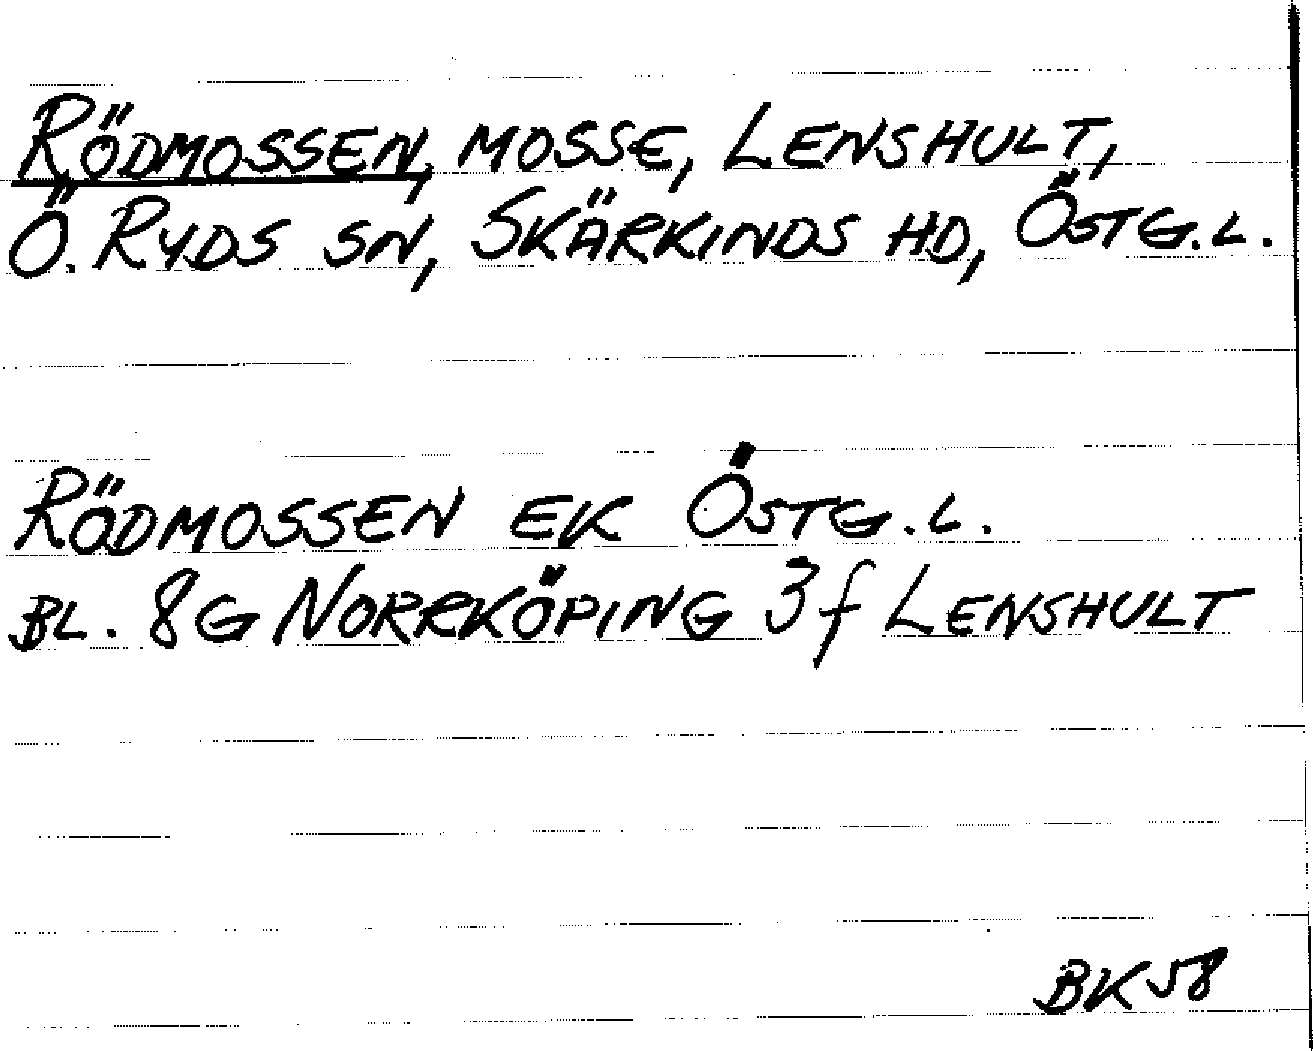 RÖDMOSSEN, MOSSE, LENSHULT,
Ö. RYDS SN, SKÄRKINDS HD, ÖSTG.L.
RÖDMOSSEN EK ÖSTG.L.
BL. 8G NORRKÖPING 3f LENSHULT
BK58